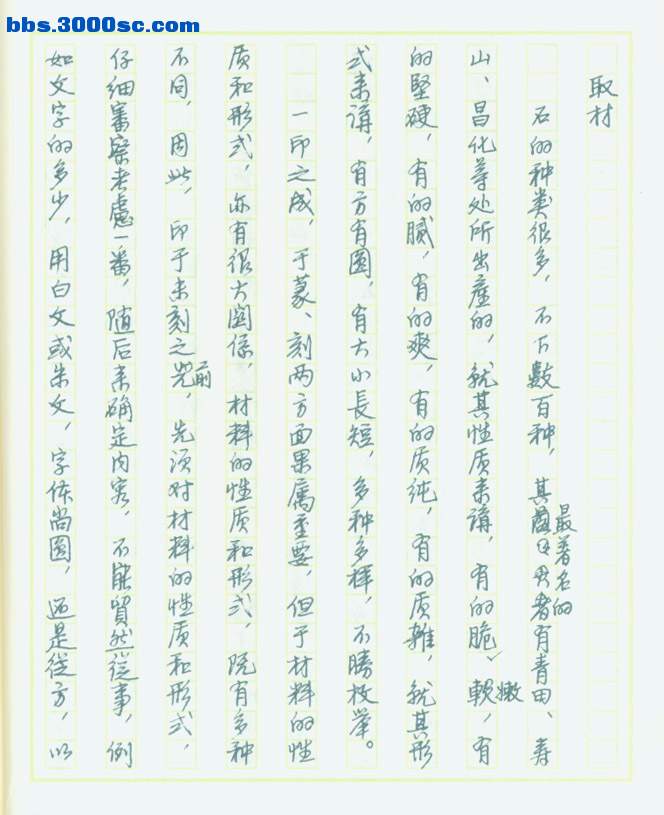 bbs.3000sc.com
取材
石的种类很多，不下数百种，其最著名的有青田、寿
山、昌化等处所出産的，就其性质来講，有的脆、軟，嫩有
的堅硬，有的腻，有的爽，有的质纯，有的质雜，就其形
式来講，有方有圆，有大小長短，多种多样，不勝枚举。
一印之成，于篆、刻两方面果属重要，但于材料的性
质和形式，亦有很大関係，材料的性质和形式，既有多种
不同，因此，印于未刻之前，先须对材料的性质和形式，
仔细審察考慮一番，随后来确定内容，不能貿然從事，例
如文字的多少，用白文或朱文，字体尚圆，还是從方，以